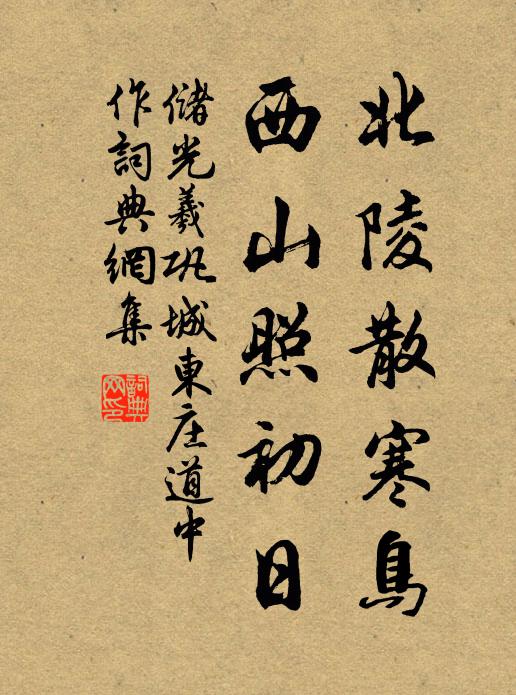 北陵散寒鳥
西山照初日
儲光羲巩城東庄道中
作詞典網集
詞典網印